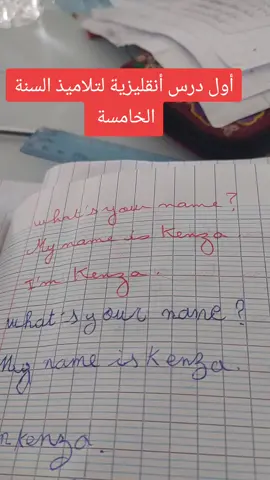 أول درس أنقليزية لتلاميذ السنة
الخامسة
what's your name?
My name is Kenza.
I'm Kenza.
what's your name?
My name is Kenza.
kenza.